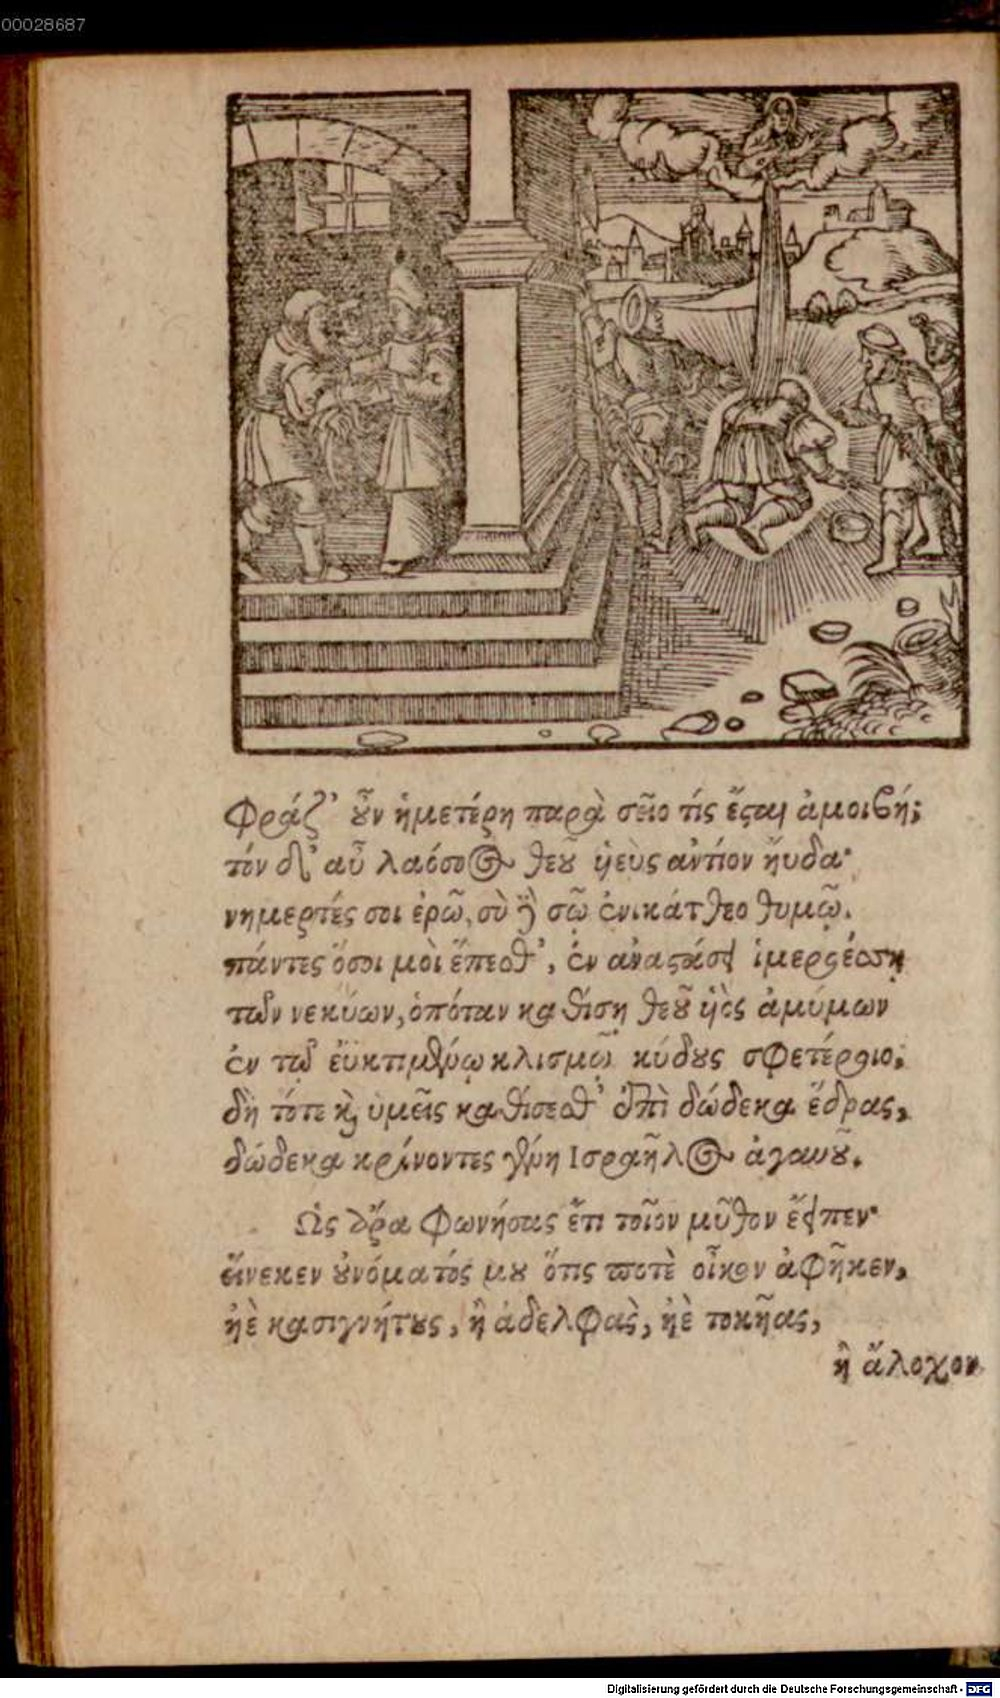 00028687
Φράζ' οὖν ἡμετέρη παρὰ σεῖο τίς ἔσται ἀμοιβή;
τόν δ' αὖ λαόσσοος θεοῦ ὑιεὺς αντίον ἤυδα·
νημερτές σοι ἐρῶ, σὺ δὲ σῷ ἐνικάτθεο θυμῷ.
πάντες ὅσοι μοὶ ἕπεσθ', ἐν αναστάσει ἱμερσέσση
τῶν νεκύων, ὁπόταν καθίση θεοῦ ὑιὸς ἀμύμων
ἐν τῷ ἐϋκτιμένῳ κλισμῷ κύδους σφετέροιο,
δὴ τότε καὶ ὑμεῖς καθίσεσθ' ἐπὶ δώδεκα ἕδρας,
δώδεκα κρίνοντες γένη Ισραῆλος ἀγαυοῦ.
Ὣς ἄρα φωνήσας ἔτι τοῖον μῦθον ἔειπεν·
εἵνεκεν οὐνόματός μου ὅτις ποτὲ οἶκον ἀφῆκεν,
ἠὲ κασιγνήτους, ἢ ἀδελφὰς, ἠὲ τοκῆας,
ἢ ἄλοχον
Digitalisierung gefördert durch die Deutsche Forschungsgemeinschaft - DFG